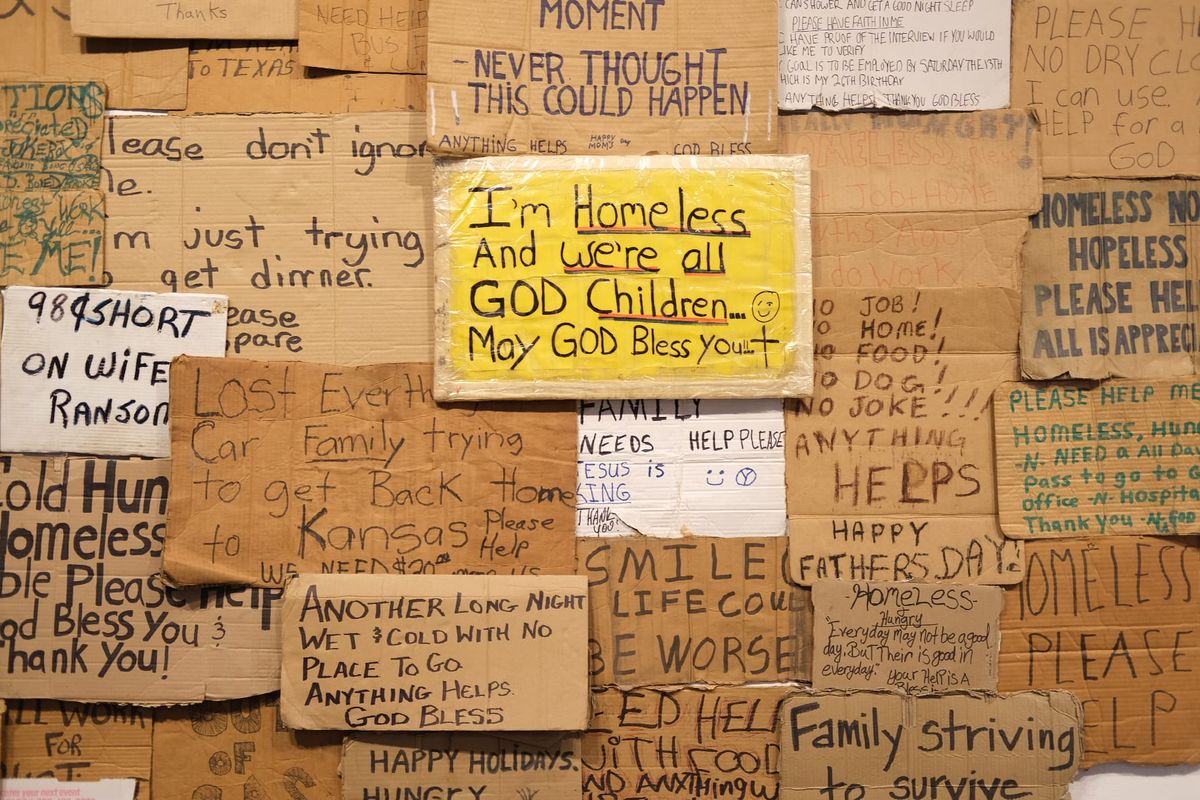 Thanks
NEED HELP
BUS F
TO TEXAS
MOMENT
-NEVER THOUGHT
THIS COULD HAPPEN
ANYTHING HELPS HAPPY MOM'S Day GOD BLESS
CAN SHOWER AND GET A GOOD NIGHT SLEEP
PLEASE HAVE FAITH IN ME
HAVE PROOF OF THE INTERVIEW IF YOU WOULD
ME TO VERIFY
GOAL IS TO BE EMPLOYED BY SATURDAY THE 13TH
WHICH IS MY 26TH BIRTHDAY
ANYTHING HELPS THANK YOU GOD BLESS
PLEASE H
NO DRY CLO
I can use.
HELP for a
GOD
lease don't ignor
e.
m just trying
get dinner.
ease
pare
ME!
I'm Homeless
And we're all
GOD Children...
May GOD Bless you!!
HUNGRY!
Job+HOME
do Work
HOMELESS NO
HOPELESS
PLEASE HEL
ALL IS APPRECI
98¢ SHORT
ON WIFE
RANSOM
LOST Everth
Car Family trying
to get Back Home
to Kansas Please
Help
WE NEED $20
FAMILY
NEEDS HELP PLEASE
JESUS is
KING
THANK
YOU!
O JOB!
O HOME!
O FOOD!
O DOG!
NO JOKE!!!!
ANYTHING
HELPS
HAPPY
FATHERS DAY!
PLEASE HELP ME
HOMELESS, Hun
-N- NEED a All Day
Pass to go to
office -N- Hospita
Thank you -N- GOD
Cold Hun
Homeless
ble Please Help
od Bless You &
Thank You!
ANOTHER LONG NIGHT
WET & COLD WITH NO
PLACE TO GO
ANYTHING HELPS.
GOD BLESS
SMILE
LIFE COUL
BE WORSE
-HOMELESS-
Hungry
"Everyday may not be a good
day. BuT Their is good in
everyday." your Help is A
Bless
OMELESS
PLEASE
ELP
LL WORK
FOR
OF
HAPPY HOLIDAYS.
HUNGRY
EED HELP
WITH FOOD
AND ANYTHING
Family striving
to survive
enter your next event